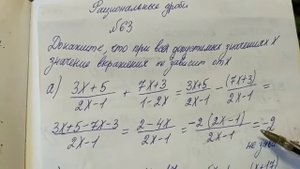 Рациональные дроби
№63
Докажите, что при всех допустимых значениях x
значение выражения не зависит от x
а) (3x+5)/(2x-1) + (7x+3)/(1-2x) = (3x+5)/(2x-1) - (7x+3)/(2x-1) =
(3x+5-7x-3)/(2x-1) = (2-4x)/(2x-1) = -2(2x-1)/(2x-1) = -2